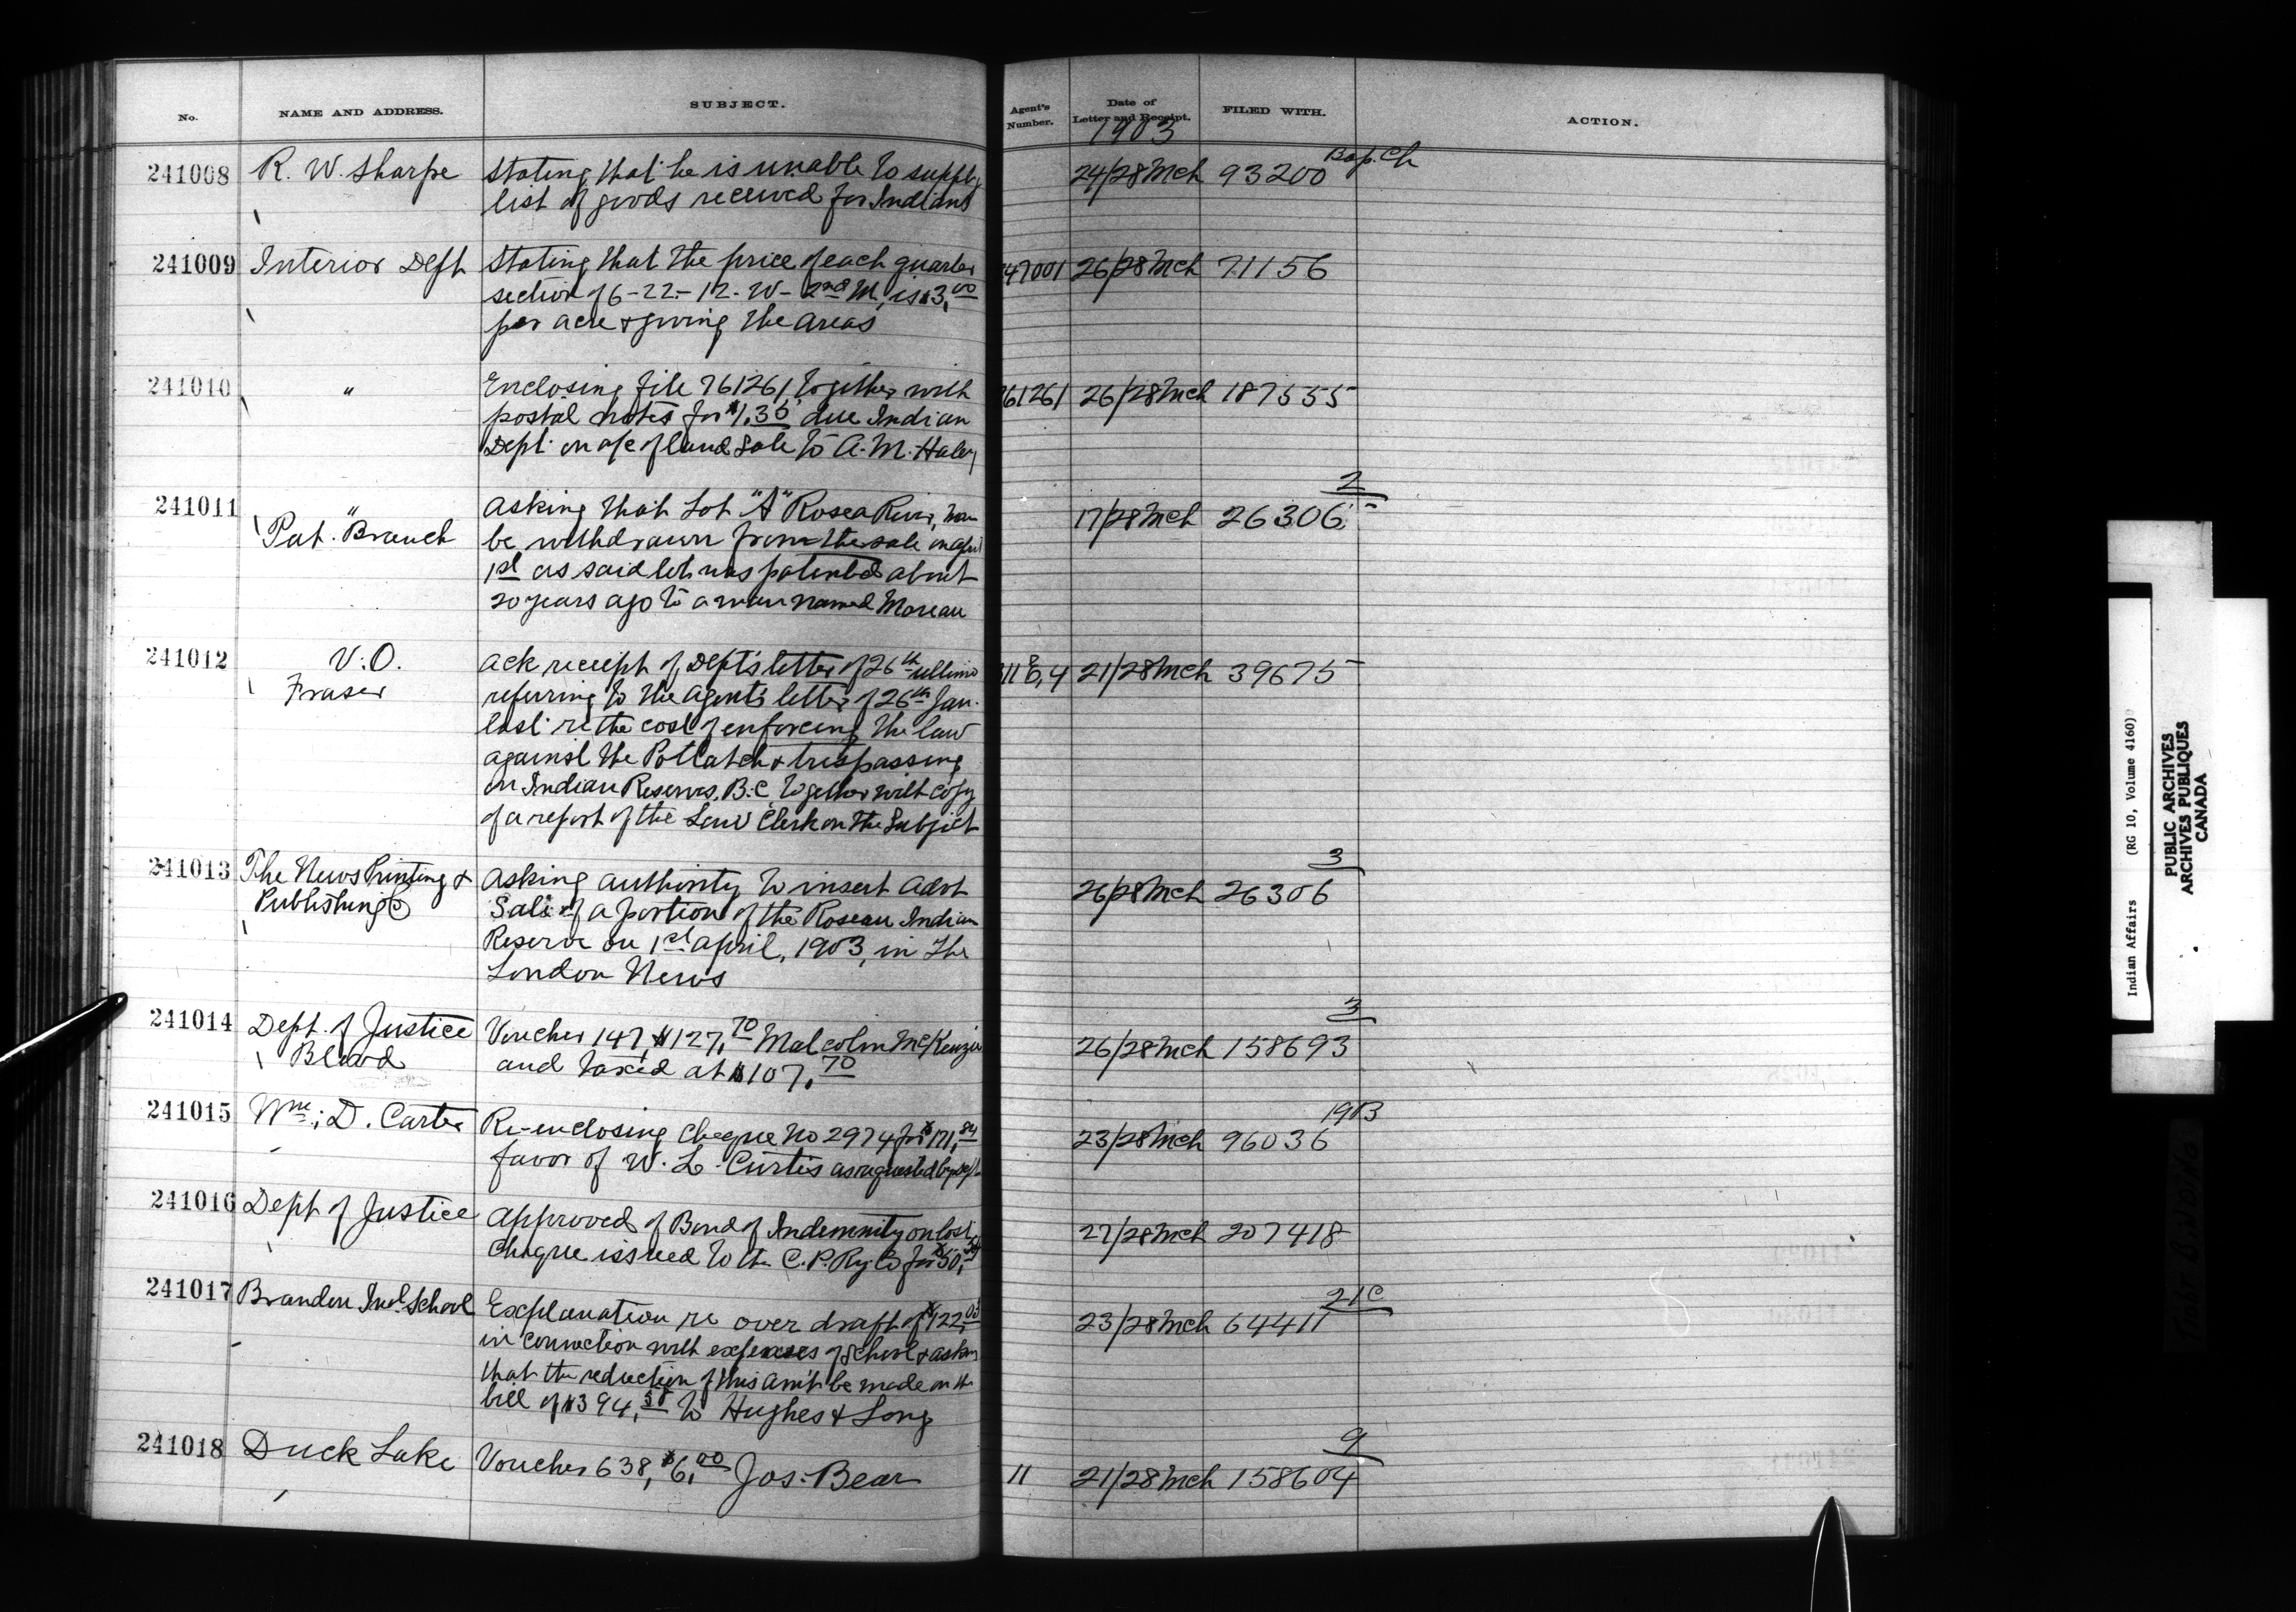 No.
NAME AND ADDRESS.
SUBJECT.
Agent's Number.
Date of Letter and Receipt.
FILED WITH.
ACTION.
1903
241008 R. W. Sharpe
Stating that he is unable to supply
list of goods received for Indians
24/28 Mch 93200 Bap. Ch
241009 Interior Dept
Stating that the price of each quarter
section of 6-22-12-W-2nd M, is $3,00
per acre & giving the areas
47001 26/28 Mch 71156
241010 "
Enclosing file 761261, together with
postal notes for $1.35 due Indian
Dept. on a/c of land sale to A. M. Haley
61261 26/28 Mch 187535
241011 "
Pat. Branch
Asking that Lot "A" Rosea River, Man
be withdrawn from the sale on April
1st as said lot was patented about
20 years ago to a man named Moreau
17/28 Mch 26306 2
241012 V.O.
Fraser
Ack receipt of Dept's letter of 26th ultimo
referring to the agent's letter of 26th Jan.
last re the cost of enforcing the law
against the Potlatch & trespassing
on Indian Reserves, B.C. together with copy
of a report of the Law Clerk on the Subject
21/28 Mch 39675
241013 The News Printing &
Publishing Co
Asking authority to insert advt
Sale of a portion of the Roseau Indian
Reserve on 1st April, 1903, in The
London News
26/28 Mch 26306 3
241014 Dept. of Justice
Blood
Voucher 147, $127,70 Malcolm McKenzie
and taxed at $107,70
26/28 Mch 158693 3
241015 Wm; D. Carter
Re-enclosing cheque No 2974 for $171,84
favor of W. L. Curtis as requested by Dept
23/28 Mch 96036 19B
241016 Dept of Justice
Approved of Bond of Indemnity on lost
cheque issued to the C.P. Ry Co for $50,
27/28 Mch 207418
241017 Brandon Ind. School
Explanation re over draft of $122,03
in connection with expenses of School & asking
that the reduction of this am't be made on the
bill of $394,58 to Hughes & Long
23/28 Mch 64411 21C
241018 Duck Lake
Voucher 638, $6,00 Jos. Bear
11 21/28 Mch 158604 9
Indian Affairs (RG 10, Volume 4160)
PUBLIC ARCHIVES
ARCHIVES PUBLIQUES
CANADA